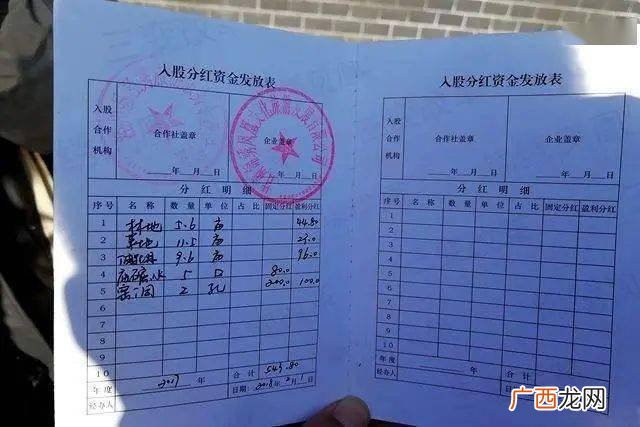 入股分红资金发放表
入股
合作
机构
合作社盖章
企业盖章
年 月 日
年 月 日
分红明细
序号 名称 数量 单位 占比 固定分红 盈利分红
1 林地 5.6 亩 44.80
2 草地 11.5 亩 23.0
3 9.6 亩 96.0
4 5 口 80.0
5 窑洞 2 孔 200.0 100.0
6
7
8
9
10
年度 2017 年 合计 543.80
经办人 日期：2018年2月1日
入股分红资金发放表
入股
合作
机构
合作社盖章
企业盖章
年 月 日
年 月 日
分红明细
序号 名称 数量 单位 占比 固定分红 盈利分红
1
2
3
4
5
6
7
8
9
10
年度 年 合计
经办人 日期： 年 月 日
广西龙网